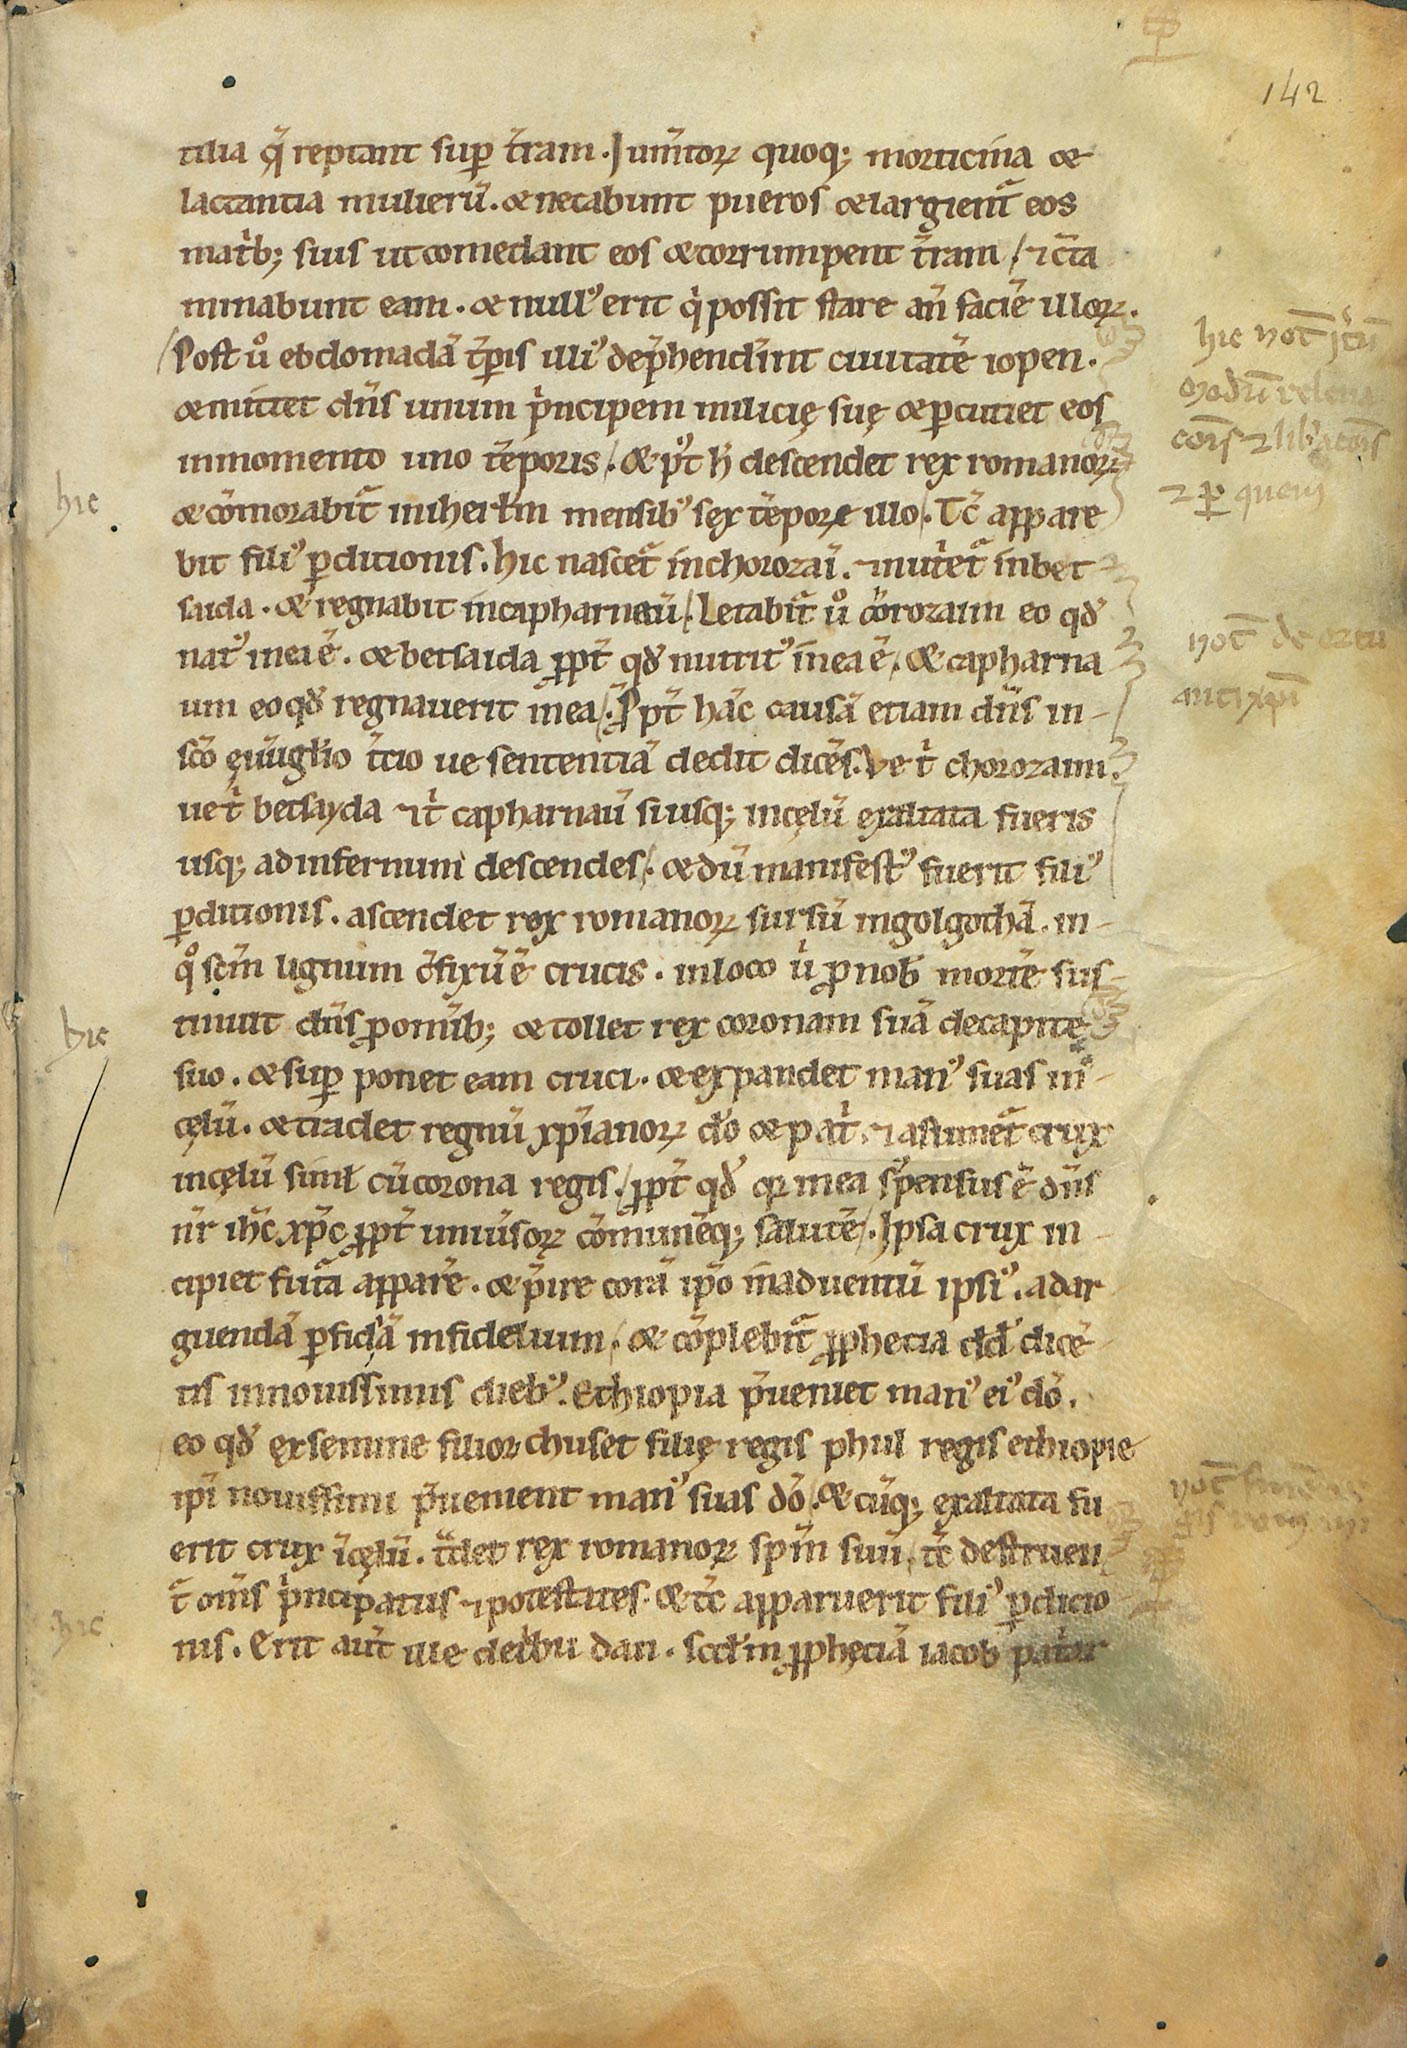 142
tilia q̄ reptant sup̄ t̄ram. Jum̄toꝝ quoq; morticina &
lactantia mulierū. & necabunt pueros & largient᷑ eos
mat̄b; suis ut comedant eos & corrumpent t̄ram / ⁊ c̄ta
minabunt eam. & null᷒ erit q̇ possit stare an̄ faciē illoꝝ.
Post u̾ ebdomadā t̄pis illi᷒ dep̄henderint ciuitatē iopen.
& mittet dn̄s unum p̄ncipem milicię suę & ꝑcutiet eos
in momento uno tēporis. & p᷒t h̄ descendet rex romanoꝝ
& cōmorabit᷑ in iherłm mensib᷒ sex tēpore illo. Tc̄ appare
bit fili᷒ ꝑditionis. hic nascet᷑ in chorozai᷒. ⁊ nutriet᷑ in bet
saida. & regnabit in capharnaū. Letabit᷑ u̾ c̄orozaim eo qd̄
nat᷒ in ei ē. & betsaida ꝓpt̄ qd̄ nutrit᷒ in ea ē. & capharna
um eo qd̄ regnauerit in ea. Ꝓpt̄ hāc causā etiam dn̄s in
scō euūgłio t̄tio ue sententiā dedit dicēs. Ve t̄ chorozaim.
ue t̄ betsayda ⁊ t̄ capharnaū si usq; in cęlū exaltata fueris
usq; ad infernum descendes. & dū manifest᷒ fuerit fili᷒
ꝑditionis. ascendet rex romanoꝝ sursū in golgothā. in
q̊ scm̄ lignum c̄fixū ē crucis. in loco u̇ ꝓ nob̄ mortē sus
tinuit dn̄s ꝓ omīb; & tollet rex coronam suā de capite
suo. & sup̄ ponet eam cruci. & expandet man᷒ suas in
cęlū. & tradet regnū xp̄ianoꝝ dō & pat̄i ⁊ assumet᷑ crux
in cęlū simł cū corona regis. ꝓpt̄ qd̄ q᷒ in ea s᷒pensus ē dn̄s
nr̄ ih̄c xp̄c ꝓpt̄ uniūsoꝝ cōmunēq; salutē. Ipsa crux in
cipiet fut᷑a apparē. & p̄ire corā ip̄o in aduentū ipsi᷒. ad ar
guendā ꝑfidiā infidelium. & cōplebit᷑ ꝓphecia dd̄ dicē
tis in nouissimis dieb᷒. Ethiopia p̄ueniet man᷒ ei᷒ dō.
eo qd̄ ex semine filioꝝ chuset filię regis phul regis ethiopie
ip̄i nouissimi p̄uenient man᷒ suas dō. & cūq; exaltata fu
erit crux ī cęlū. t᷑det rex romanoꝝ spm̄ suū. tc̄ destruen
t᷑ om̄s p̄ncipatus ⁊ potestates. & tc̄ apparuerit fili᷒ ꝑdicio
nis. Erit aut̄ ille de tribu dan. scd̄m ꝓphęciā iacob pat̄ar
hic
hic
hic
hic not̄ it̄ū
modū releua
cōis ⁊ lib̄acōis
⁊ ꝑ quem
not̄ de ortu
antixp̄i